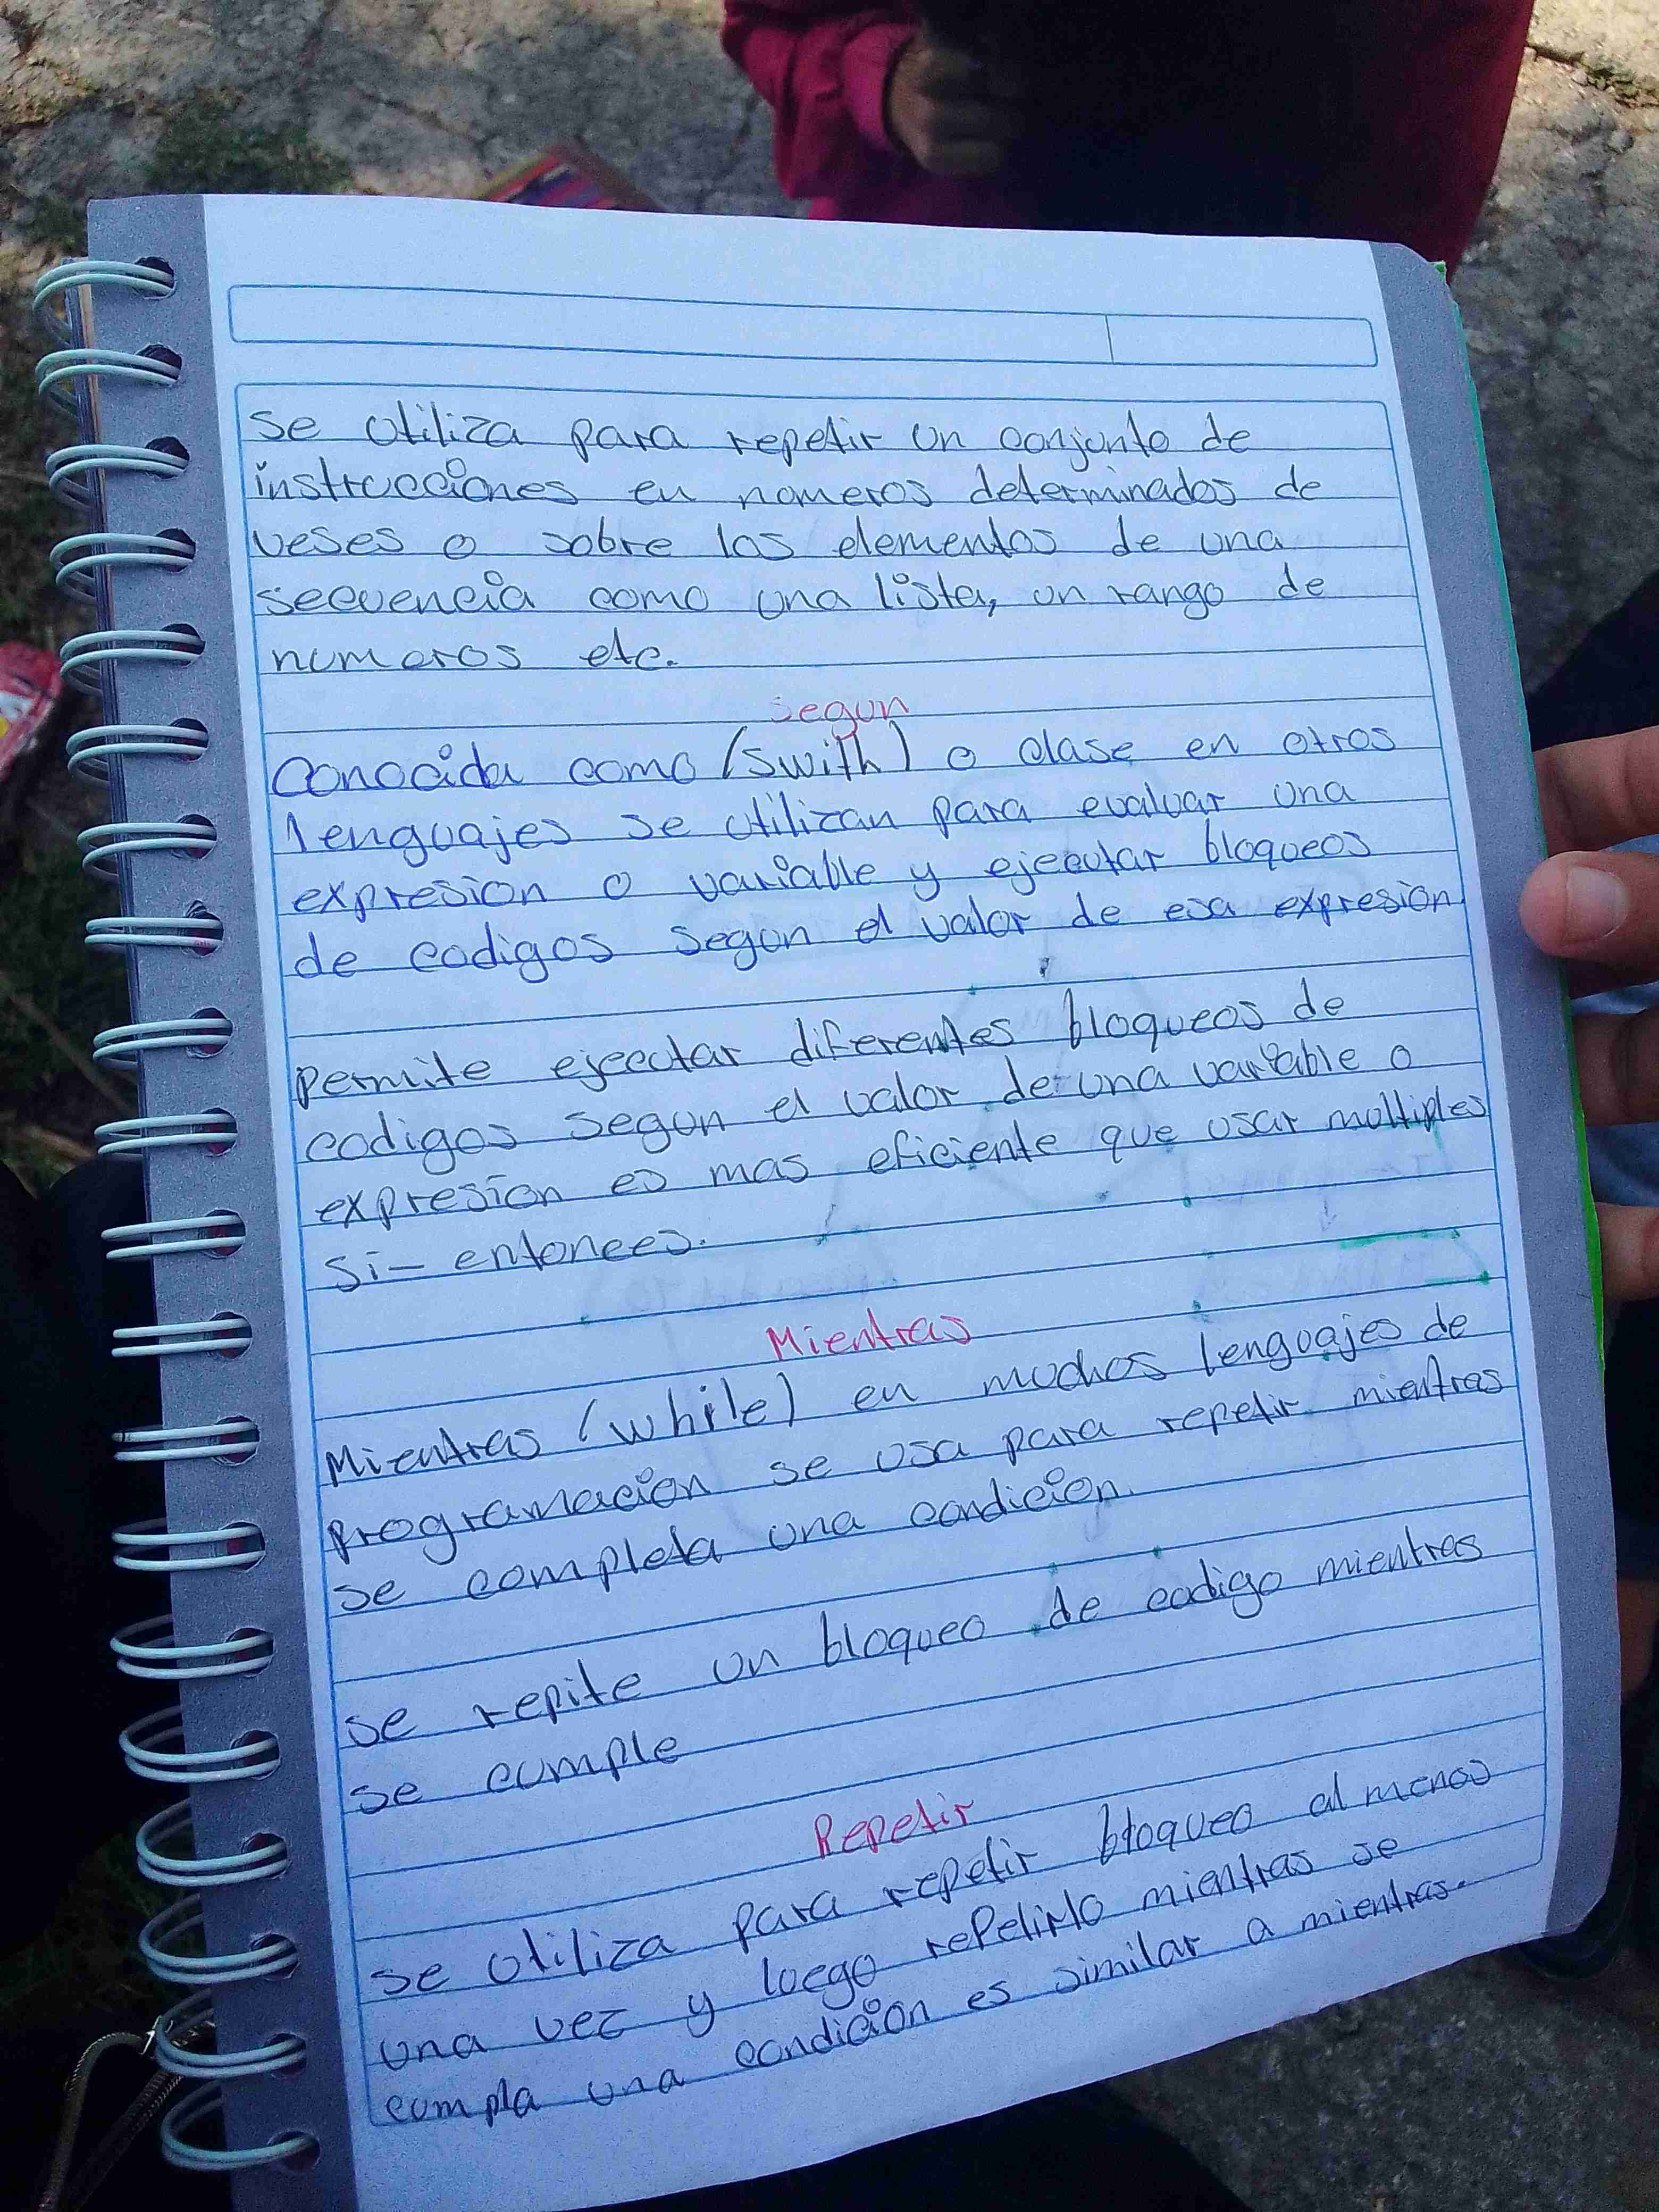 se utiliza para repetir un conjunto de
instrucciones en numeros determinados de
veses o sobre los elementos de una
secuencia como una lista, un rango de
numeros etc.
segun
Conocida como (swith) o clase en otros
lenguajes se utilizan para evaluar una
expresion o variable y ejecutar bloqueos
de codigos segun el valor de esa expresion
permite ejecutar diferentes bloqueos de
codigos segun el valor de una variable o
expresion es mas eficiente que usar multiples
si- entonces.
Mientras
Mientras (while) en muchos lenguajes de
programacion se usa para repetir mientras
se completa una condicion.
se repite un bloqueo de codigo mientras
se cumple
Repetir
se utiliza para repetir bloqueo al menos
una vez y luego repetirlo mientras se
cumpla una condicion es similar a mientras.